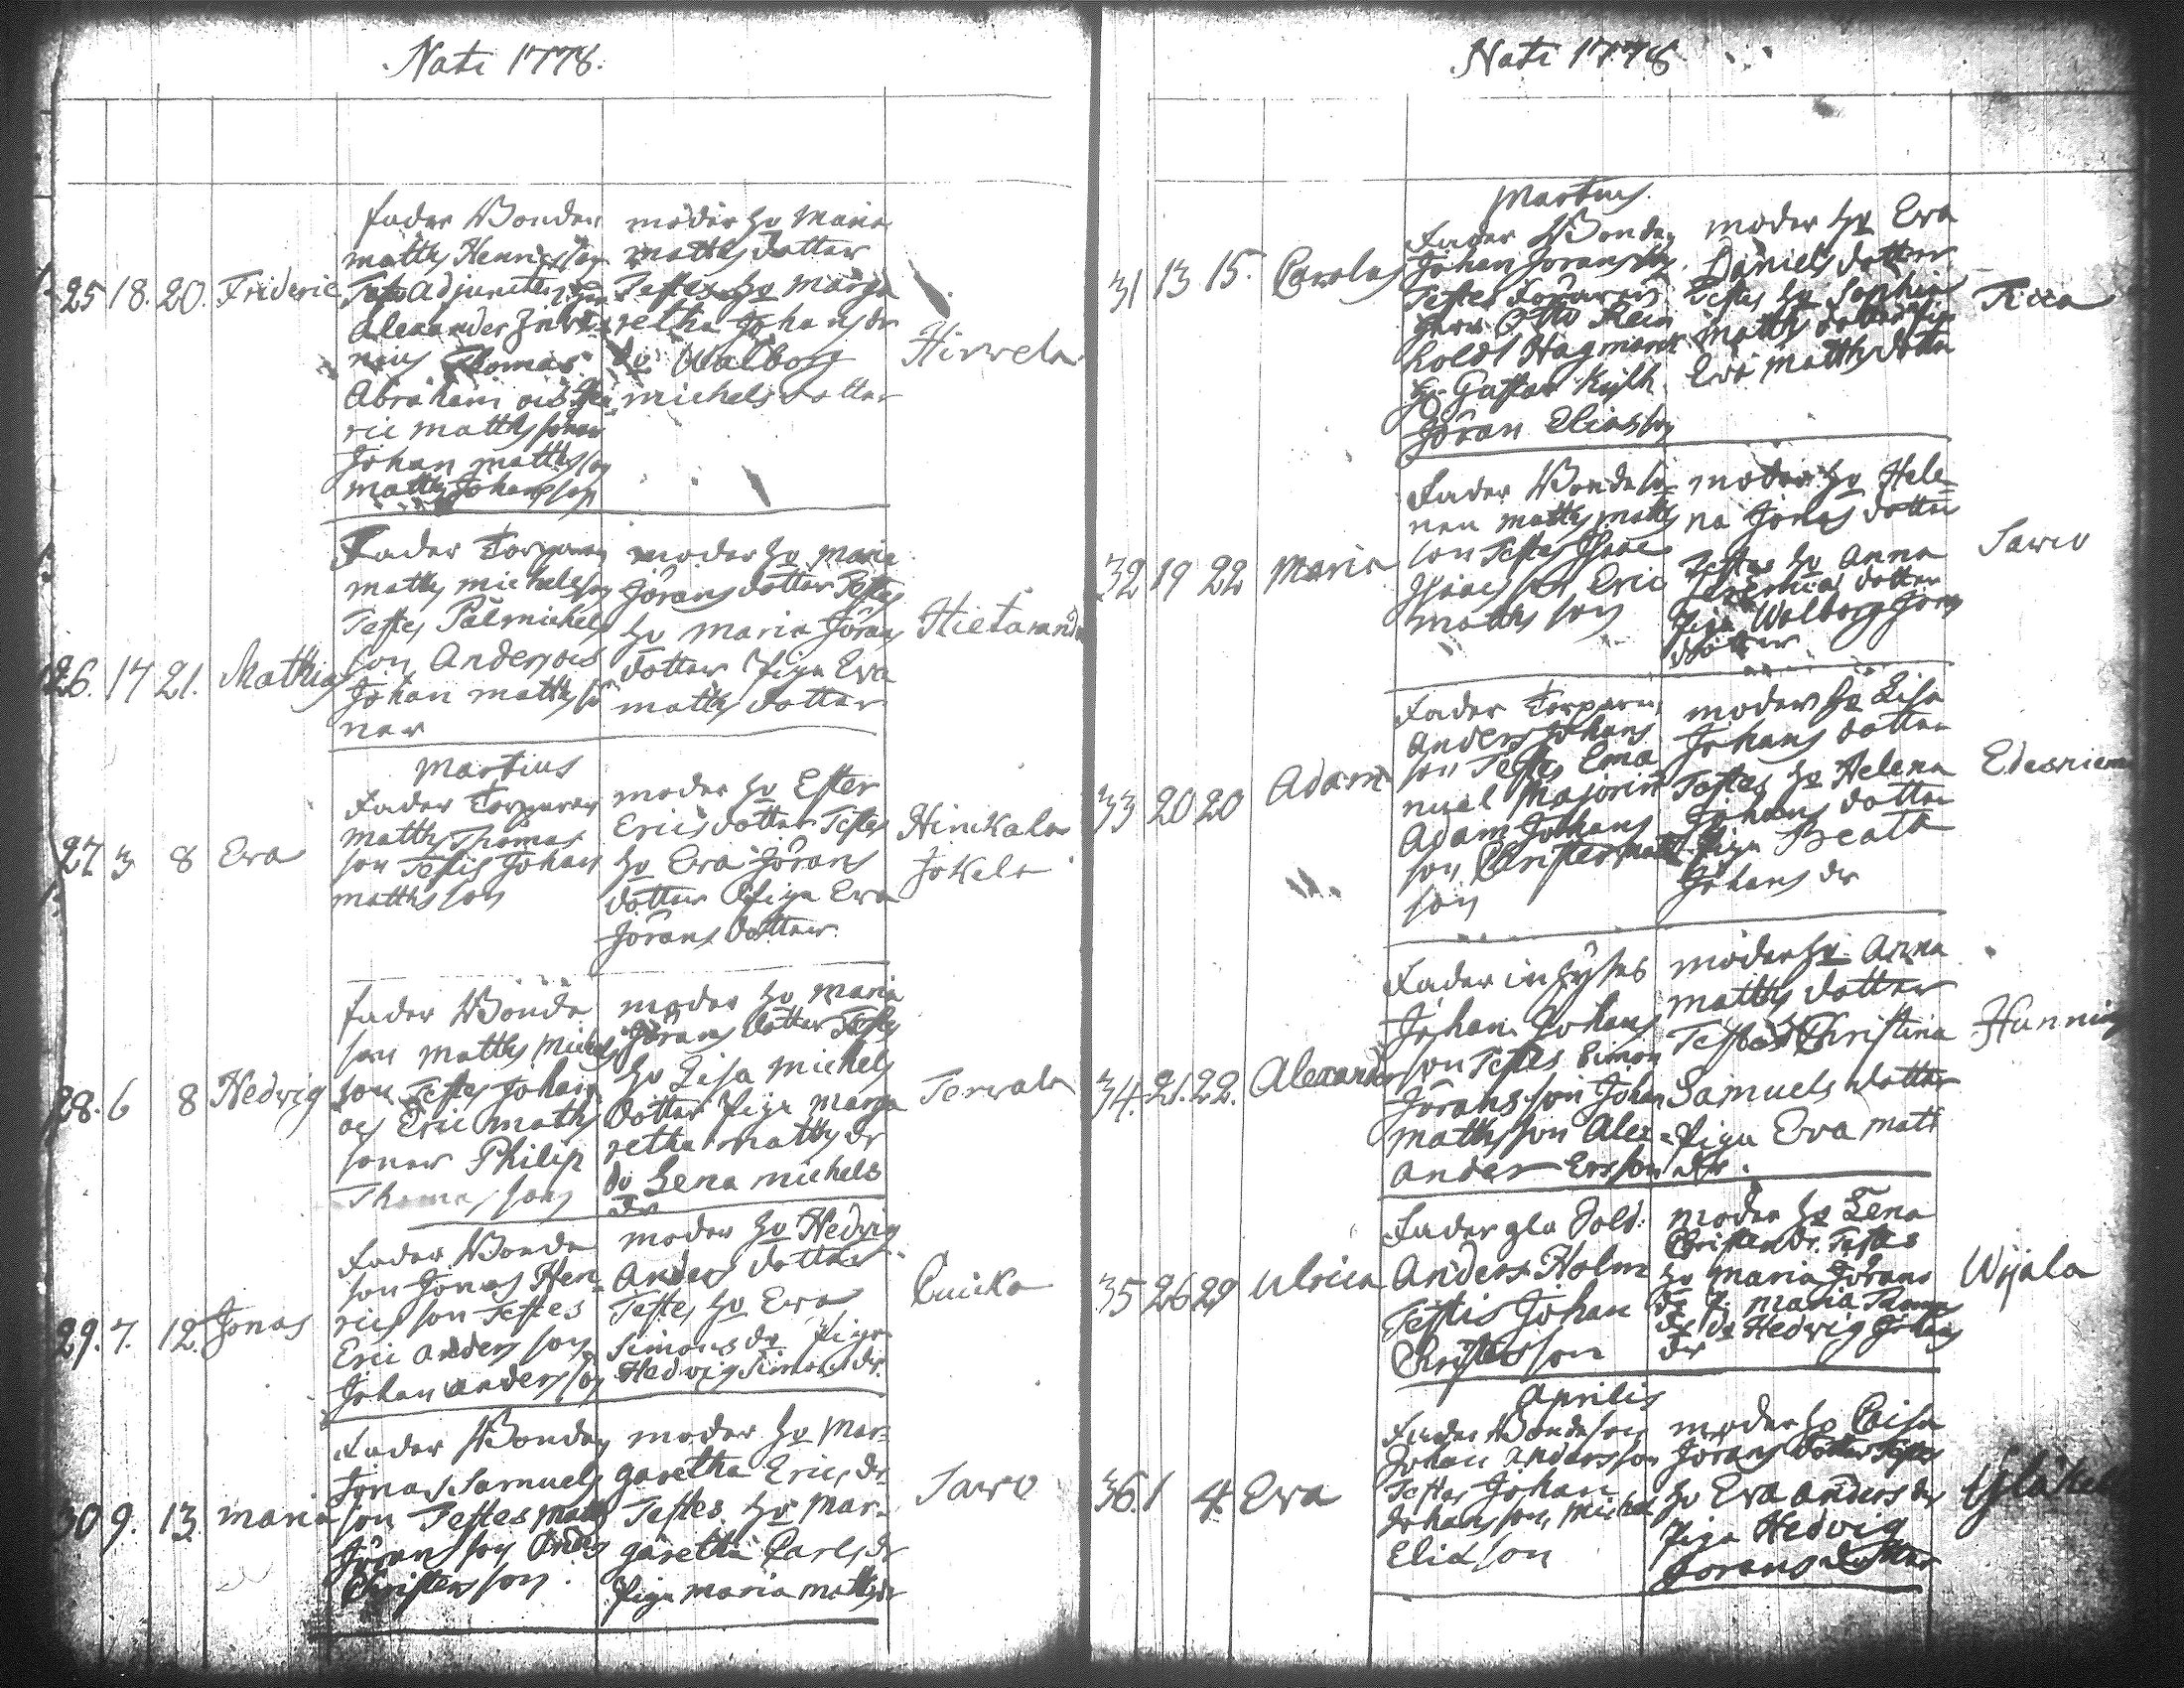 Nati 1778.
25 18. 20. Frideric
Fader Bonden
Matths Henricsson
Testes Adjuncten Herr
Alexander
Thomas
Abraham och Hen
ric Matthssöner
Johan Mattsson
Matths Johansson
moder Hu Maria
Matths dotter
Testes Hu Marga
retha Johans dr
do Walborg
Michels dotter
Hirvela
26. 17 21. Mathias
Fader Torparen
Matths Michelsson
Testes Pål Michels
son Anders och
Johan Matthssö
ner
moder Hu Maria
Jörans dotter Testes
Hu Maria Jörans
dotter Piga Eva
Matths dotter
Hietaranda
Martius
27 3 8 Eva
Fader Torparen
Matths Thomas
son Testis Johan
Matthsson
moder Hu Ester
Erics dotter Testes
Hu Eva Jörans
dotter Piga Eva
Jörans dotter
Hinikala
Jokela
28. 6 8 Hedvig
Fader Bonde
son Matths Michels
son Testes Johan
och Eric Matths
söner Philip
Thomasson
moder Hu Maria
Jörans dotter Testes
Hu Lisa Michels
dotter Piga Marga
retha Matths dr
do Lena Michels
dr
Tervala
29. 7. 12. Jonas
Fader Bonde
son Jonas Hen-
rics son Testes
Eric Andersson
Johan Andersson
moder Hu Hedvig
Anders dotter
Testes Hu Eva
Simons dr Piga
Hedvig Simons dr.
Cuicka
30 9. 13. Maria
Fader Bonden
Jonas Samuels
son Testes Matts
Jöransson Anders
Christersson.
moder Hu Mar-
garetha Erics dr
Testes Hu Mar-
garetha Carls dr
Piga Maria Matts dr
Sawo
Nati 1778
Martius.
31 13 15. Carolus
Fader Bonden
Johan Jöransson.
Testes
Herr Otto Rein
holdt Hagmarck
Hr Gustav Kyhl
Jöran Eliasson
moder Hu Eva
Daniels dotter
Testes Hu Sophia
Matths dotter Pig
Eva Matths dotter
Ticca
32 19 22 Maria
Fader Bondeso
nen Matths Matths
son Testes Isaac
Isacsson Eric
Matths son
moder Hu Hele-
na Jonas dotter
Testes Hu Anna
Jeremias dotter
Piga Walborg Jöns
dotter
Sawo
33 20 20 Adam
Fader Torparen
Anders Johans
son Testes Ema
nuel Majorin
Adam Johans
son Christer Matts
son
moder Hu Lisa
Johans dotter
Testes Hu Helena
Johans dotter
Piga Beata
Johans dr
Edesniemi
34. 21. 22. Alexander
Fader inhyses
Johan Johans
son Testes Simon
Jöransson Johan
Matthsson Alex-
ander Ersson
moder Hu Anna
Matths dotter
Testes Christina
Samuels dotter
Piga Eva Matt
dr.
Hunning
35 26 29 Ulrica
Fader gla Sold:
Anders Holm
Testis Johan
Christersson
moder Hu Lena
Christer dr. Testes
Hu Maria Jörans
dr P. Maria
dr do Hedvig Johans
dr
Wijala
Aprilis
36. 1 4. Eva
Fader Bondeson
Johan Andersson
Testes Johan
Johansson Michel
Eliasson
moder Hu Caisa
Jörans dotter Testes
Hu Eva Anders dr
Piga Hedvig
Jörans dotter